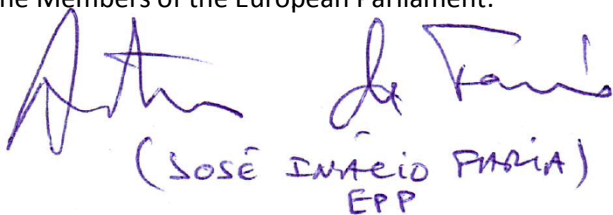 he Members of the European Parliament.
(JOSÉ INÁCIO FARIA)
EPP